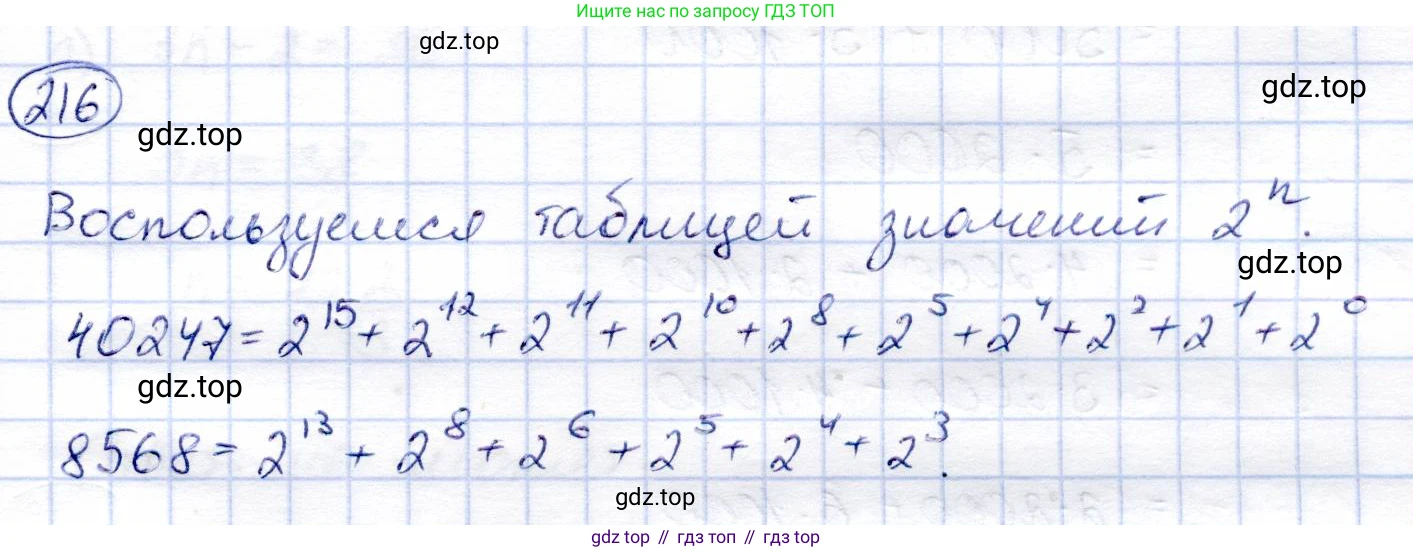 Ищите нас по запросу ГДЗ ТОП
gdz.top
216
gdz.top
gdz.top
Воспользуемся таблицей значений 2ⁿ.
gdz.top
40247 = 2¹⁵ + 2¹² + 2¹¹ + 2¹⁰ + 2⁸ + 2⁵ + 2⁴ + 2² + 2¹ + 2⁰
gdz.top
8568 = 2¹³ + 2⁸ + 2⁶ + 2⁵ + 2⁴ + 2³.
gdz.top
gdz top // гдз топ // gdz top